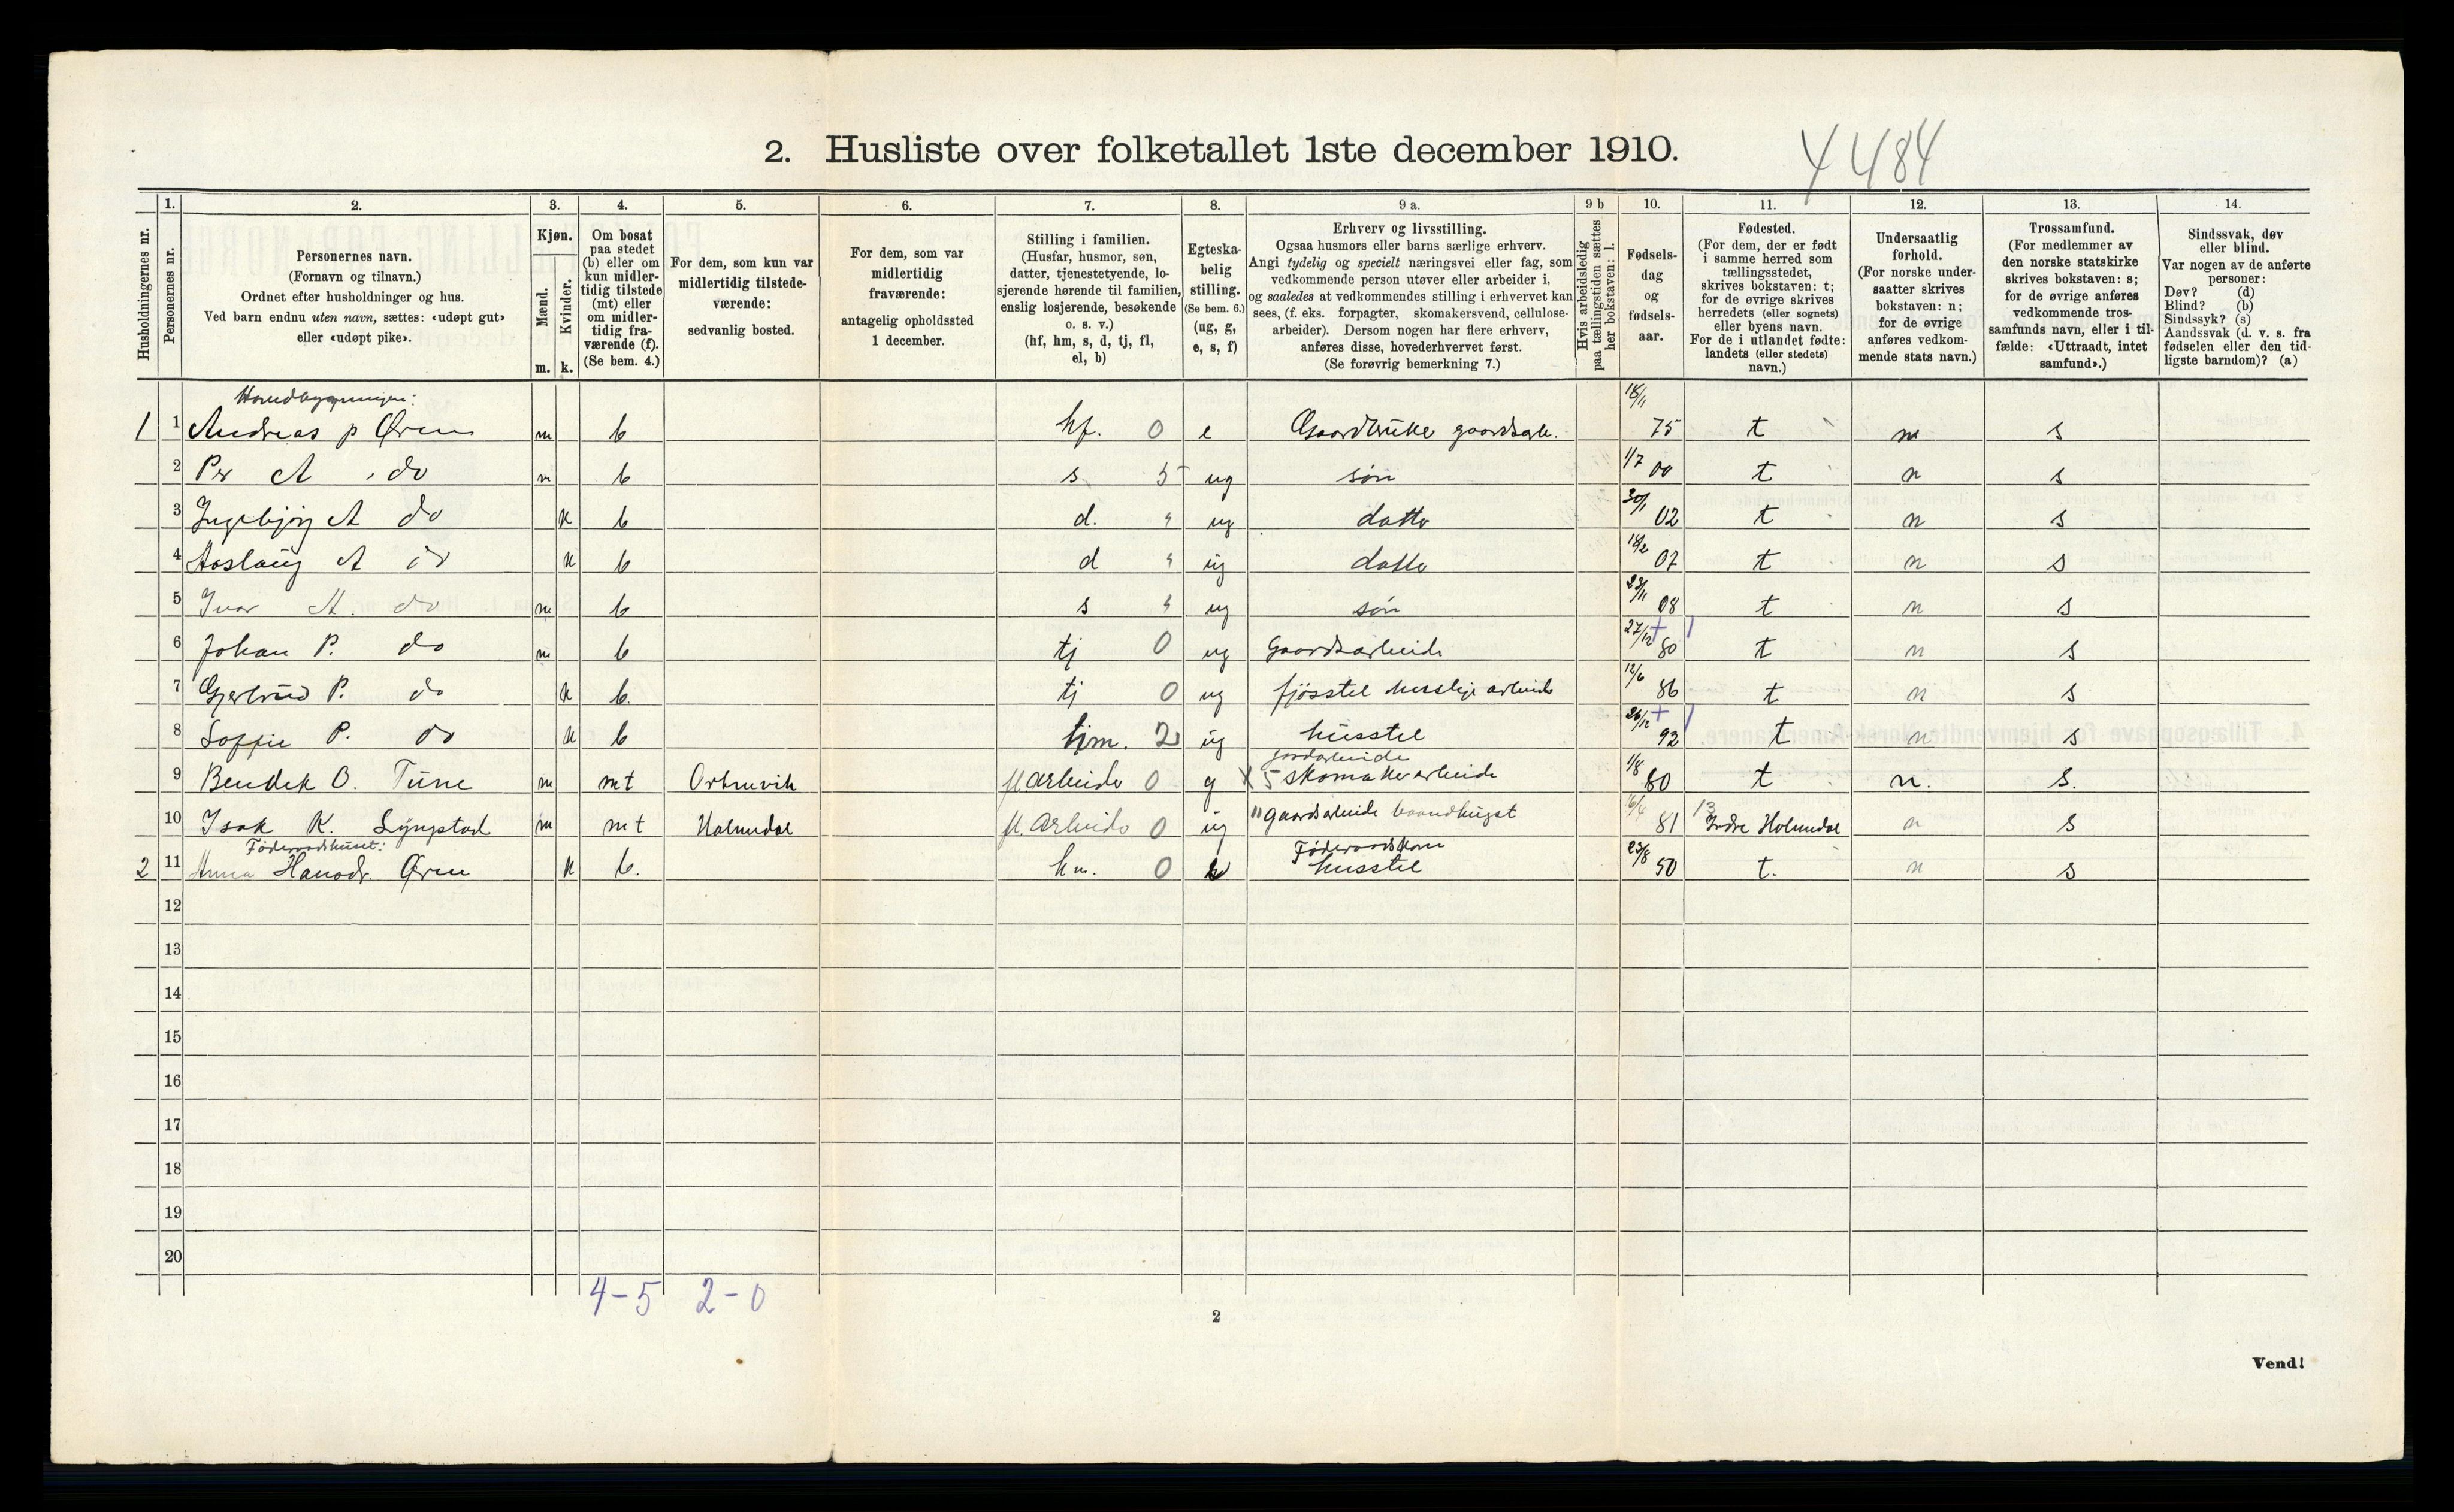 2. Husliste over folketallet 1ste december 1910.
4484
1. 2. 3. 4. 5. 6. 7. 8. 9 a. 9 b 10. 11. 12. 13. 14.
Husholdningernes nr.
Personernes nr.
Personernes navn.
(Fornavn og tilnavn.)
Ordnet efter husholdninger og hus.
Ved barn endnu uten navn, sættes: «udøpt gut»
eller «udøpt pike».
Kjøn.
Mænd.
Kvinder.
m. k.
Om bosat
paa stedet
(b) eller om
kun midler-
tidig tilstede
(mt) eller
om midler-
tidig fra-
værende (f).
(Se bem. 4.)
For dem, som kun var
midlertidig tilstede-
værende:
sedvanlig bosted.
For dem, som var
midlertidig
fraværende:
antagelig opholdssted
1 december.
Stilling i familien.
(Husfar, husmor, søn,
datter, tjenestetyende, lo-
sjerende hørende til familien,
enslig losjerende, besøkende
o. s. v.)
(hf, hm, s, d, tj, fl,
el, b)
Egteska-
belig
stilling.
(Se bem. 6.)
(ug, g,
e, s, f)
Erhverv og livsstilling.
Ogsaa husmors eller barns særlige erhverv.
Angi tydelig og specielt næringsvei eller fag, som
vedkommende person utøver eller arbeider i,
og saaledes at vedkommendes stilling i erhvervet kan
sees, (f. eks. forpagter, skomakersvend, cellulose-
arbeider). Dersom nogen har flere erhverv,
anføres disse, hovederhvervet først.
(Se forøvrig bemerkning 7.)
Hvis arbeidsledig
paa tællingstiden sættes
her bokstaven: l.
Fødsels-
dag
og
fødsels-
aar.
Fødested.
(For dem, der er født
i samme herred som
tællingsstedet,
skrives bokstaven: t;
for de øvrige skrives
herredets (eller sognets)
eller byens navn.
For de i utlandet fødte:
landets (eller stedets)
navn.)
Undersaatlig
forhold.
(For norske under-
saatter skrives
bokstaven: n;
for de øvrige
anføres vedkom-
mende stats navn.)
Trossamfund.
(For medlemmer av
den norske statskirke
skrives bokstaven: s;
for de øvrige anføres
vedkommende tros-
samfunds navn, eller i til-
fælde: «Uttraadt, intet
samfund».)
Sindssvak, døv
eller blind.
Var nogen av de anførte
personer:
Døv? (d)
Blind? (b)
Sindssyk? (s)
Aandssvak (d. v. s. fra
fødselen eller den tid-
ligste barndom)? (a)
Hovedbygningen:
1 1 Andreas P Øren m b hf. 0 e Gaardbruker gaardsarb. 18/11 75 t n s
2 Per A do m b s 5 ug søn 1/7 00 t n s
3 Ingebjørg A do k b d. " ug datter 30/1 02 t n s
4 Aaslaug A do k b d " ug datter 18/2 07 t n s
5 Ivar A. do m b s " ug søn 23/11 08 t n s
6 Johan P. do m b tj 0 ug Gaardsarbeide 27/12 80 t n s
7 Gjertrud P. do k b. tj 0 ug fjösstel huslige arbeide 12/6 86 t n s
8 Soffie P. do k b tjm. 2 ug husstel 26/12 92 t n s
jordarbeide
9 Bendik O. Tune m mt Ortnevik fl arbeider 0 g x 5 skomakerarbeide 1/8 80 t n. s.
10 Isak K. Lyngstad m mt Holmedal fl. arbeider 0 ug " gaardsarbeide 16/4 81 13 Indre Holmedal n s
Föderaadshuset:
Föderaadskone
2 11 Anna Hansdr. Øren k b. hm. 0 husstel 23/8 50 t. n s
12
13
14
15
16
17
18
19
20
4-5 2-0
2
Vend!